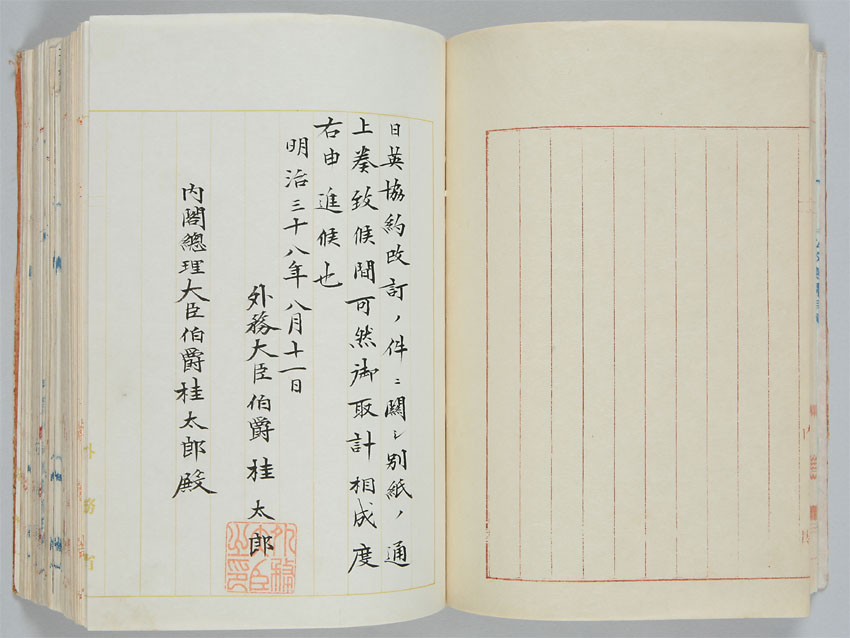 日英協約改訂ノ件ニ関シ別紙ノ通
上奏致候間可然御取計相成度
右申進候也
明治三十八年八月十一日
外務大臣伯爵桂太郎
外務大臣之印
内閣總理大臣伯爵桂太郎殿
外務省